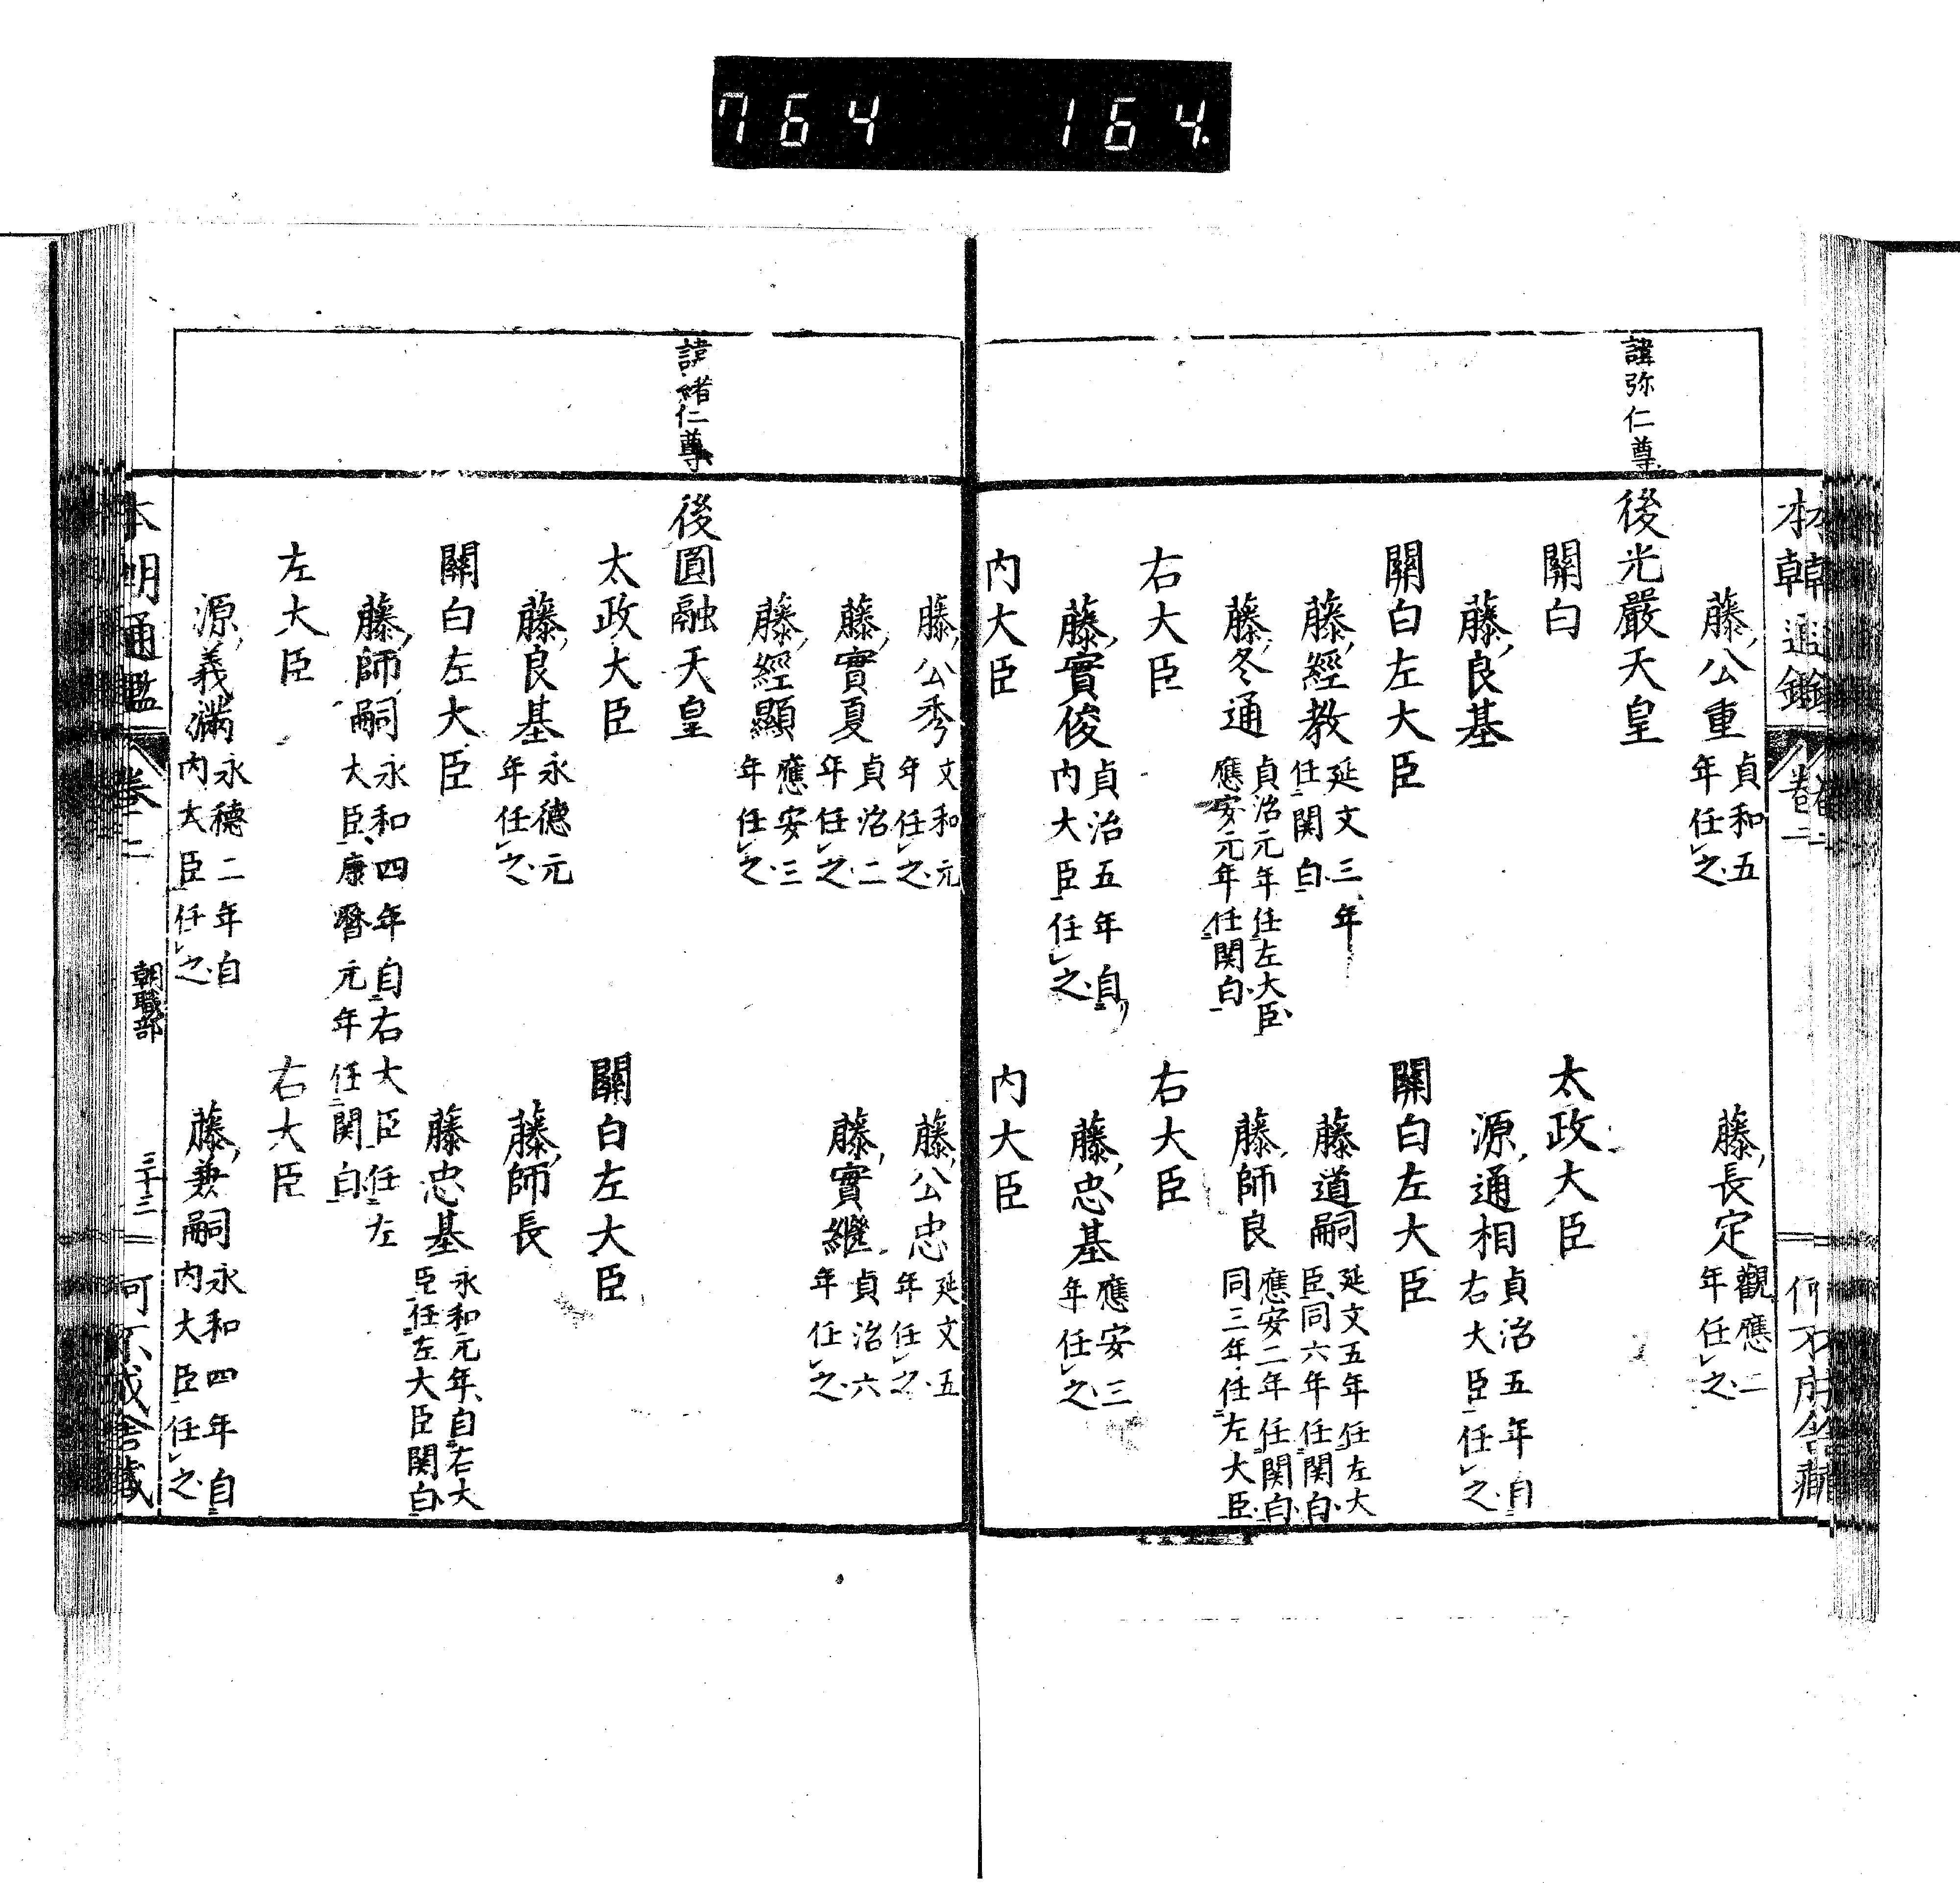 764 164.
諱弥仁尊
藤公重 貞和五年任之
藤長定 觀應二年任之
後光嚴天皇
關白
太政大臣
藤良基
源通相 貞治五年自右大臣任之
關白左大臣
關白左大臣
藤經教 延文三年任関白
藤道嗣 延文五年任左大臣同六年任関白
藤冬通 貞治元年任左大臣應安元年任関白
藤師良 應安二年任関白同三年任左大臣
右大臣
右大臣
藤實俊 貞治五年自内大臣任之
藤忠基 應安三年任之
内大臣
内大臣
諱緒仁尊
藤公秀 文和元年任之
藤公忠 延文五年任之
藤實夏 貞治二年任之
藤實繼 貞治六年任之
藤經顯 應安三年任之
後圓融天皇
太政大臣
關白左大臣
藤良基 永德元年任之
藤師長
關白左大臣
藤忠基 永和元年自右大臣任左大臣関白
藤師嗣 永和四年自右大臣任左大臣康曆元年任関白
左大臣
右大臣
源義滿 永德二年自内大臣任之
藤兼嗣 永和四年自内大臣任之
本朝通鑑 卷二 朝職部 三十三